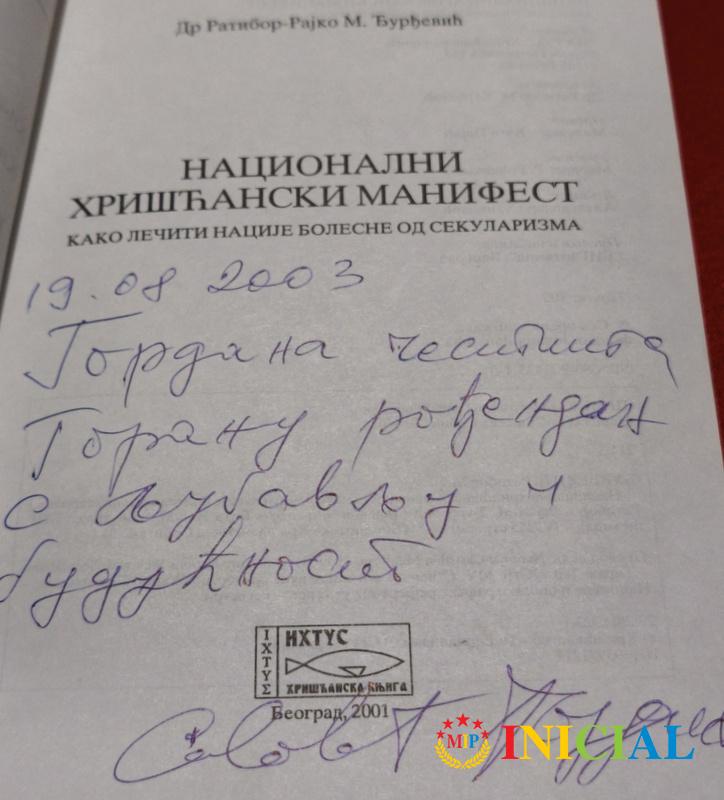 Др Ратибор-Рајко М. Ђурђевић
НАЦИОНАЛНИ
ХРИШЋАНСКИ МАНИФЕСТ
КАКО ЛЕЧИТИ НАЦИЈЕ БОЛЕСНЕ ОД СЕКУЛАРИЗМА
19.08 2003
Гордана честита
Горану рођендан
с љубављу и
будућност
ΙΧΤΥΣ
ИХТУС
ХРИШЋАНСКА КЊИГА
Београд, 2001
MIP INICIAL